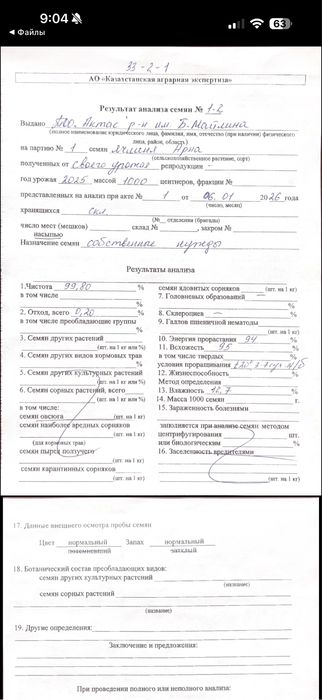 9:04
63
◀ Файлы
33-2-1
АО «Казахстанская аграрная экспертиза»
Результат анализа семян № 1-2
Выдано ТОО. Актас р-н им Б. Майлина
(полное наименование юридического лица, фамилия, имя, отчество (при наличии) физического
лица, район, область)
на партию № 1 семян ячменя Арна
(сельскохозяйственное растение, сорт)
полученных от своего урожая репродукции
год урожая 2025 массой 1000 центнеров, фракции №
представленных на анализ при акте № 1 от 06.01 2026 года
(число, месяц)
хранящихся скл.
(№ отделения (бригады)
число мест (мешков) склад № , закром №
насыпью
Назначение семян собственные нужды
Результаты анализа
1.Чистота 99,80 %
в том числе
%
2. Отход, всего 0,20 %
в том числе преобладающие группы
%
3. Семян других растений
(шт. на 1 кг или %)
4. Семян других видов кормовых трав
%
5. Семян других культурных растений
(шт. на 1 кг или %)
6. Семян сорных растений, всего
(шт. на 1 кг или %)
в том числе:
семян овсюга
(шт. на 1 кг)
семян наиболее вредных сорняков
(для кормовых трав)
(шт. на 1 кг)
семян пырея ползучего
(шт. на 1 кг)
семян карантинных сорняков
(шт. на 1 кг)
семян ядовитых сорняков
(шт. на 1 кг)
7. Головневых образований —
%
8. Склероциев — %
9. Галлов пшеничной нематоды
(шт. на 1 кг)
10. Энергия прорастания 94 %
11. Всхожесть 95 %
в том числе твердых %
условия проращивания
12. Жизнеспособность %
Метод определения
13. Влажность 12,7 %
14. Масса 1000 семян г.
15. Зараженность болезнями
заполняется при анализе семян методом
центрифугирования шт.
или биологическим %
16. Заселенность вредителями
(шт. на 1 кг)
17. Данные внешнего осмотра пробы семян
Цвет нормальный Запах нормальный
потемневший затхлый
18. Ботанический состав преобладающих видов:
семян других культурных растений
(название)
семян сорных растений
(название)
19. Другие определения:
Заключение и предложения:
При проведении полного или неполного анализа: